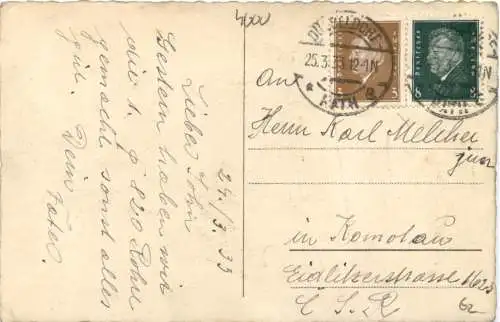 4000
24./3.33
Lieber John
Gestern haben wir
die 1. 820 Rohre
gemacht sonst alles
gut. Dein
Vater.
DÜSSELDORF
25.3.33.12-1N
RATH
DEUTSCHES
3
8
An
Herrn Karl Melcher
jun
in Komotau
Eidlitzerstrasse 1623
Č S. R